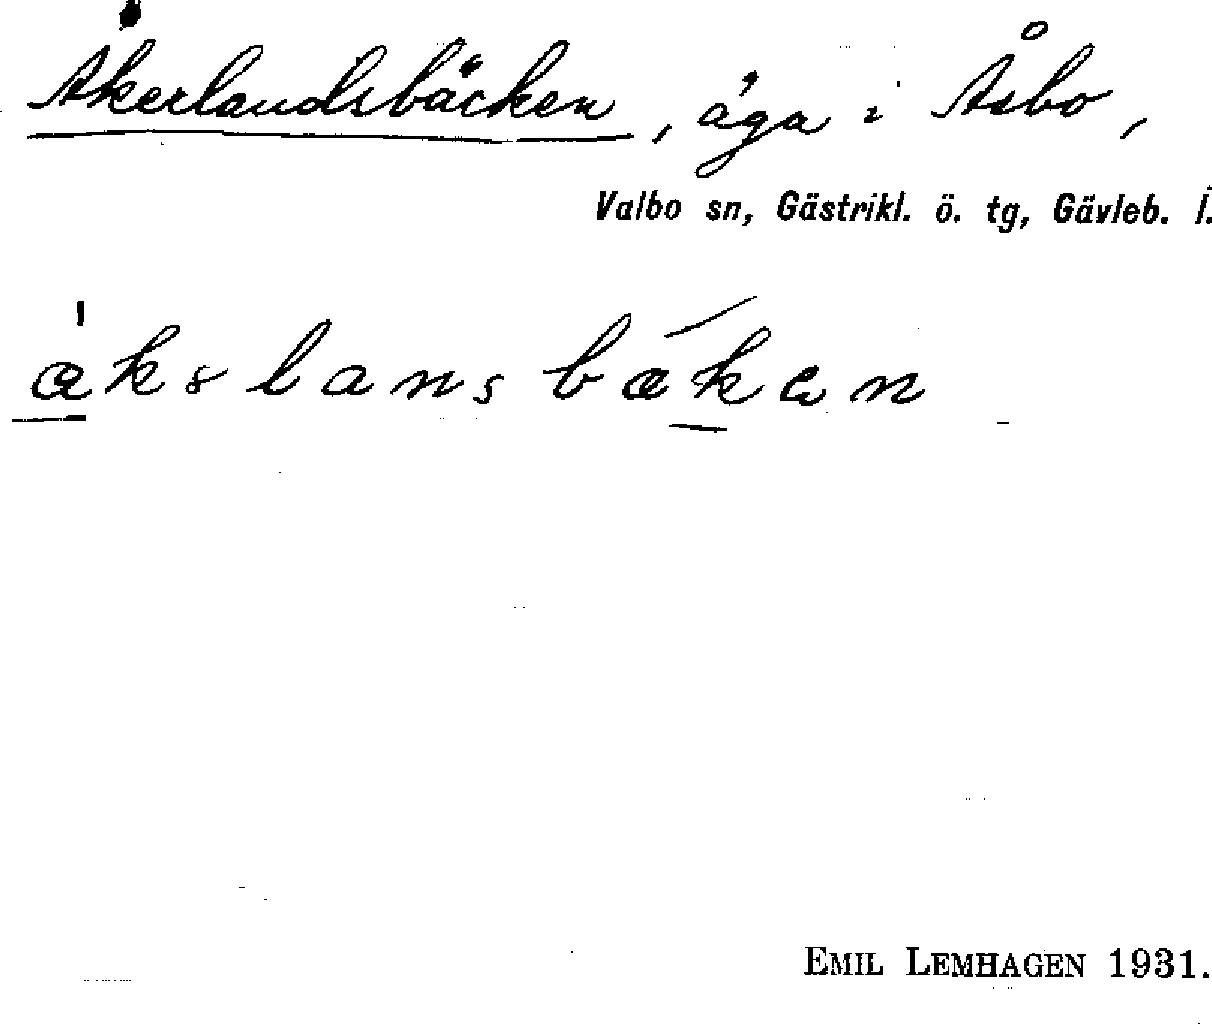 Åkerlandsbäcken, äga i Åsbo,
Valbo sn, Gästrikl. ö. tg, Gävleb. l.
EMIL LEMHAGEN 1931.